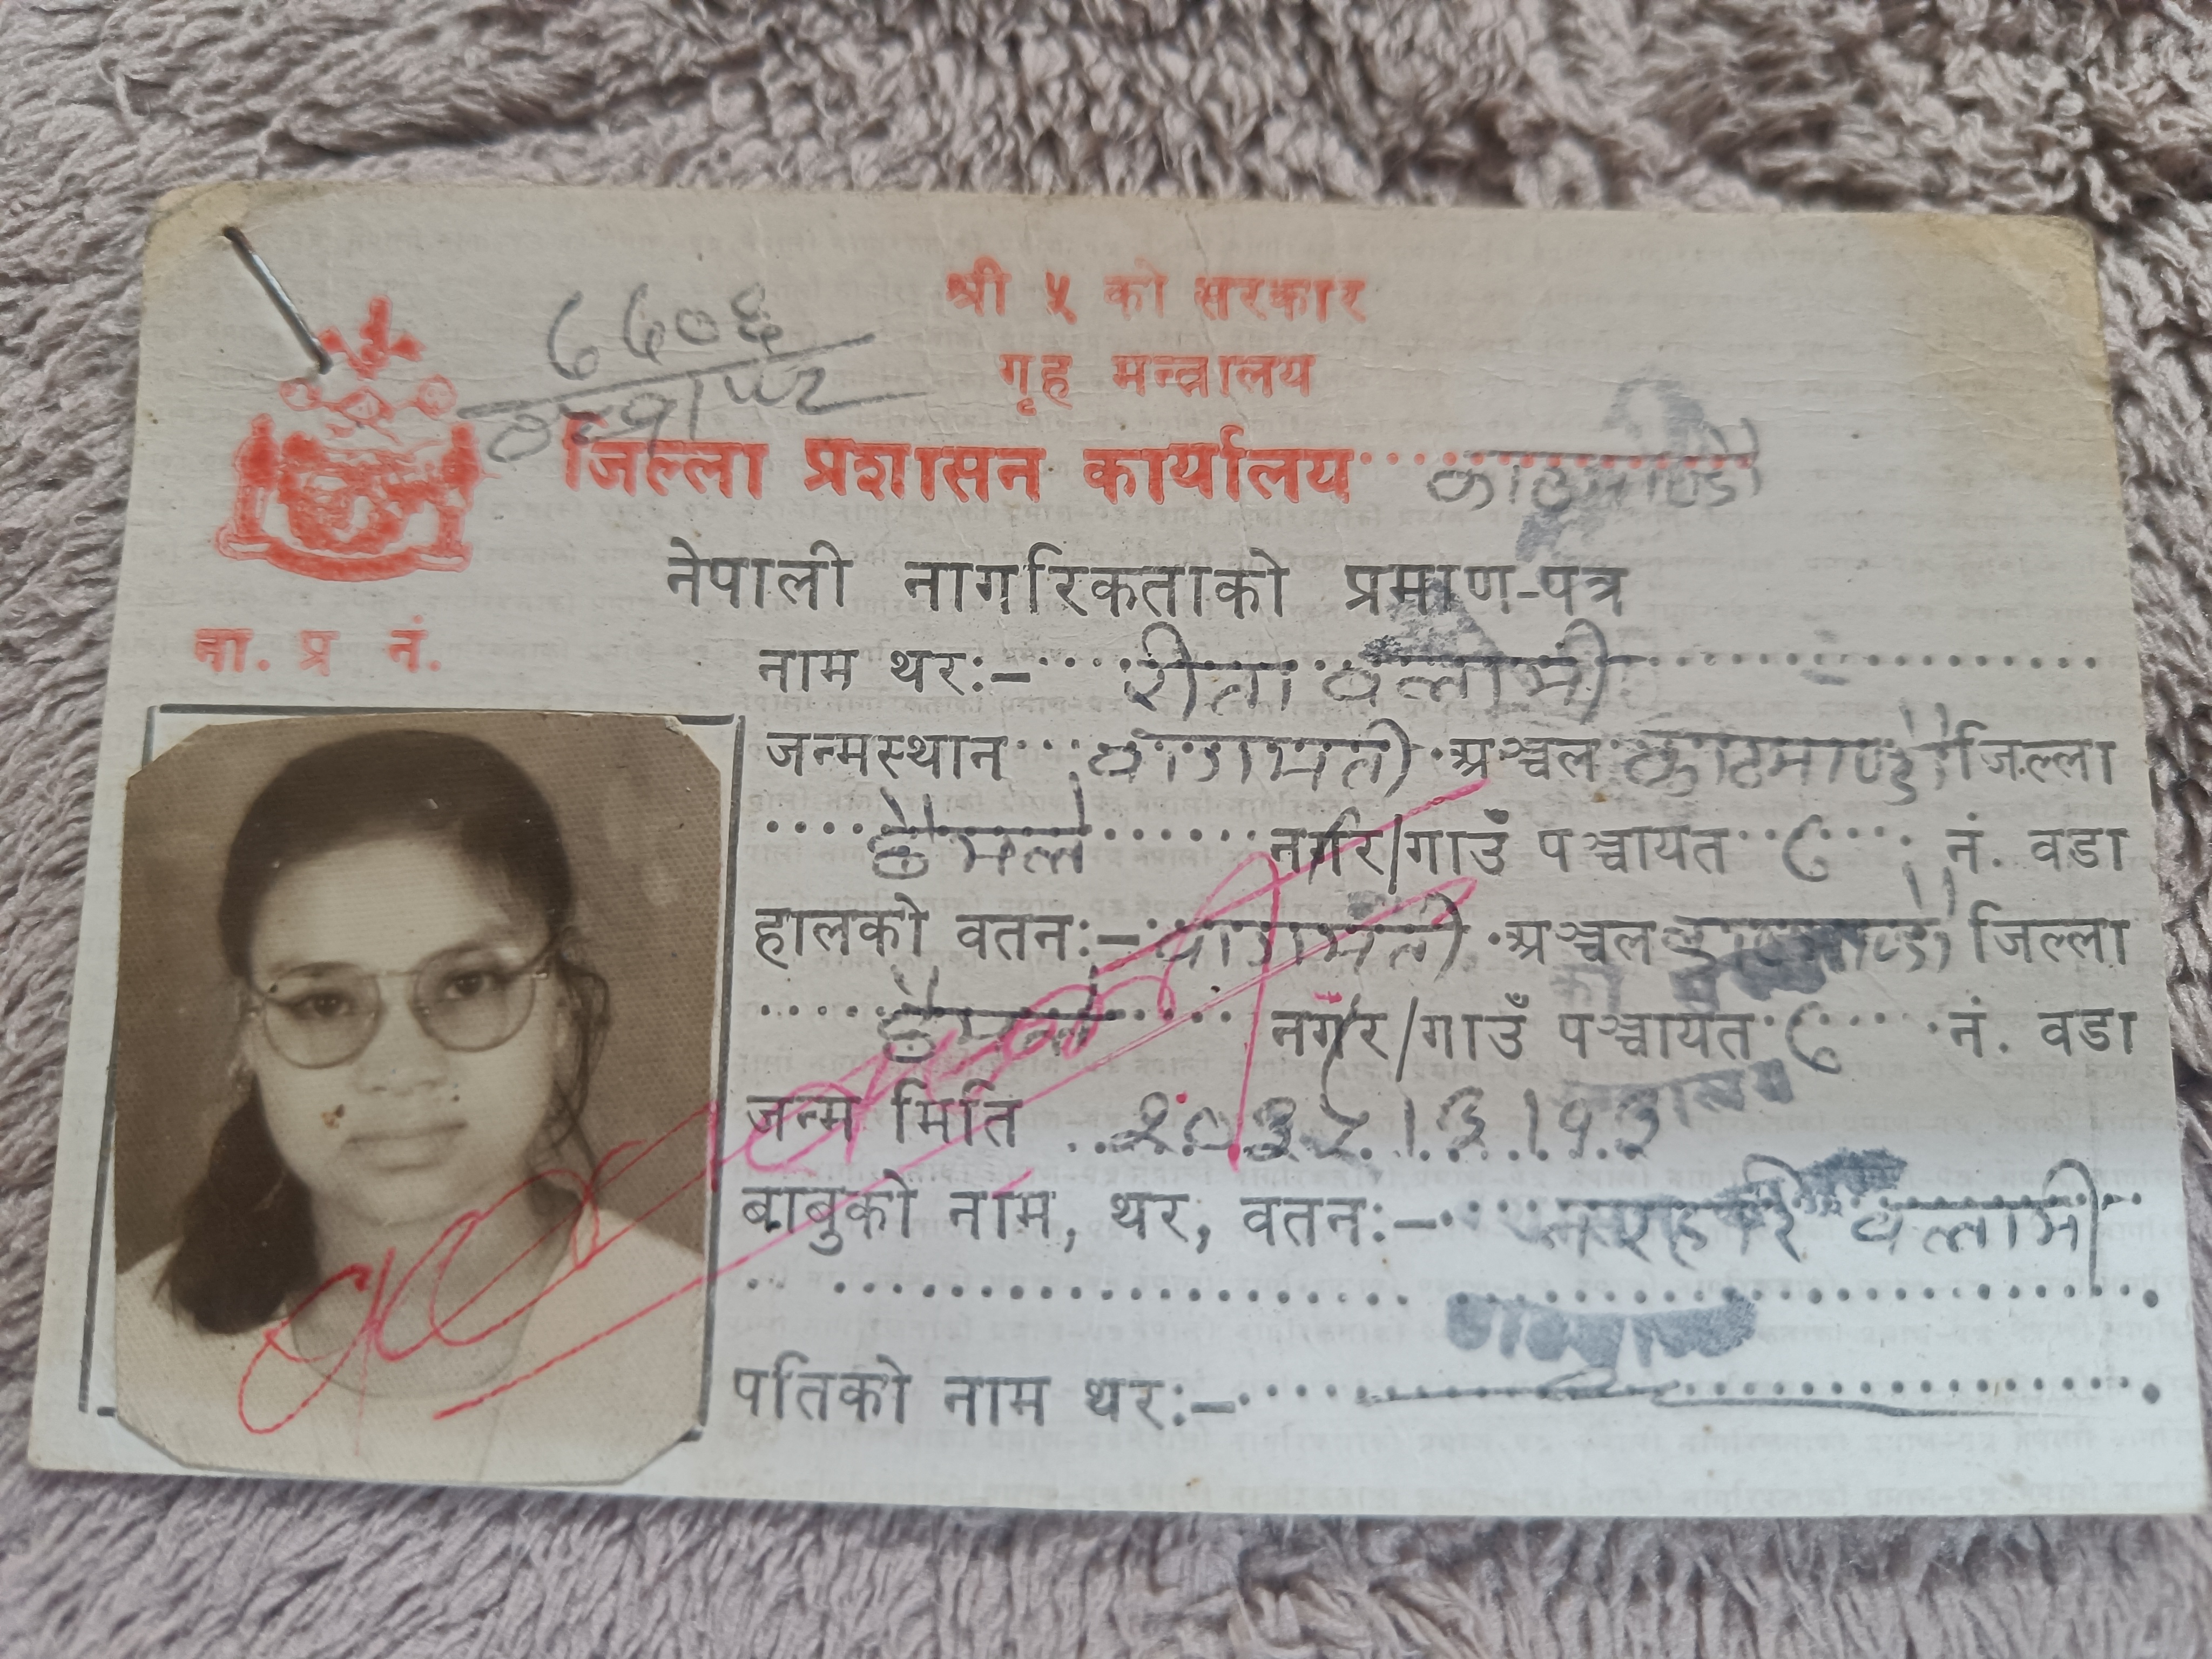 श्री ५ को सरकार
गृह मन्त्रालय
जिल्ला प्रशासन कार्यालय काठमाण्डौ
नेपाली नागरिकताको प्रमाण-पत्र
ना. प्र नं.
नाम थर:- रीता वलामी
जन्मस्थान वागमती अञ्चल काठमाण्डौ जिल्ला
छैमले नगर/गाउँ पञ्चायत ८ नं. वडा
हालको वतन:- वागमती अञ्चल काठमाण्डौ जिल्ला
छैमले नगर/गाउँ पञ्चायत ८ नं. वडा
जन्म मिति
बाबुको नाम, थर, वतन:- नरहरि वलामी
पतिको नाम थर:-